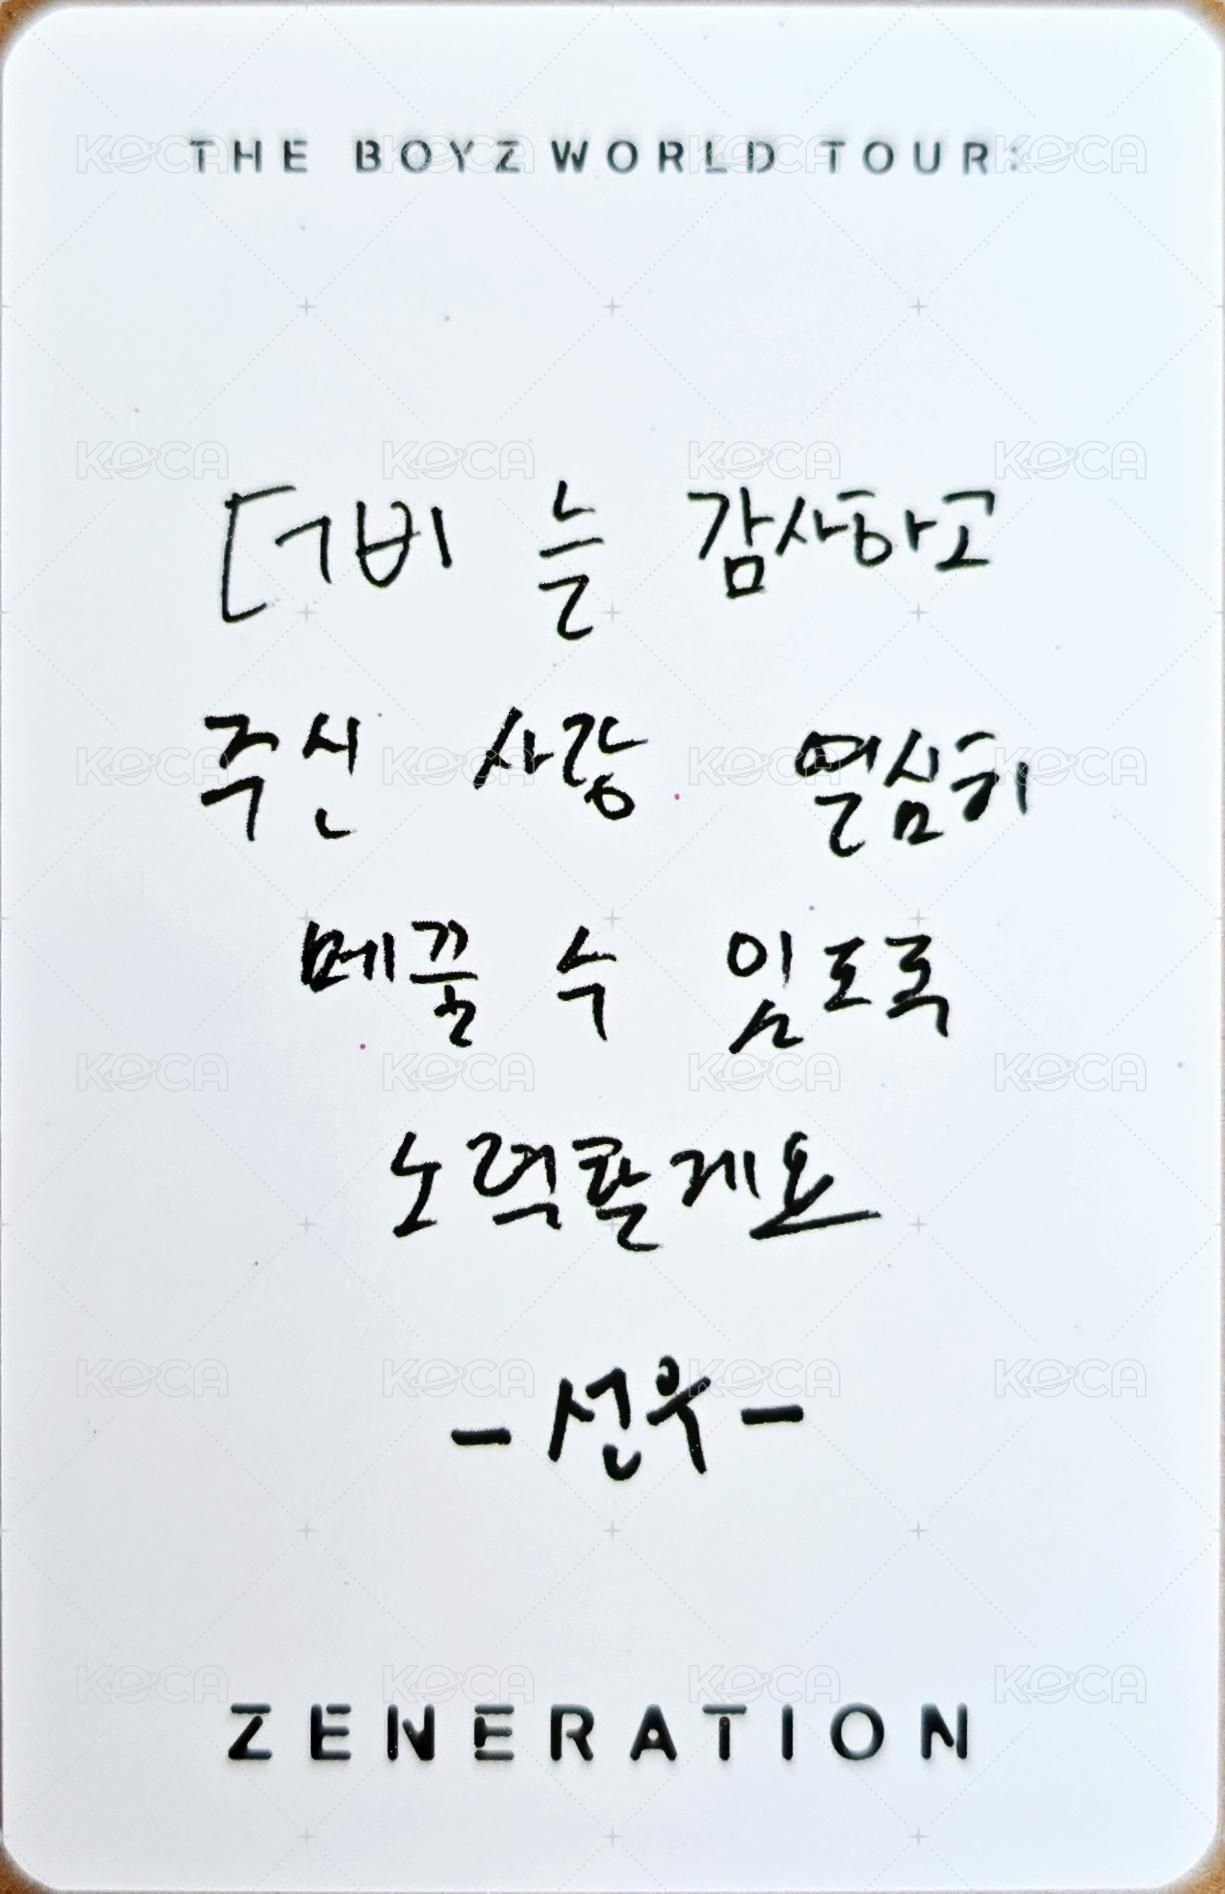 THE BOYZ WORLD TOUR:
더비 늘 감사하고
주신 사랑 열심히
메꿀 수 있도록
노력할게요
- 선우 -
ZENERATION